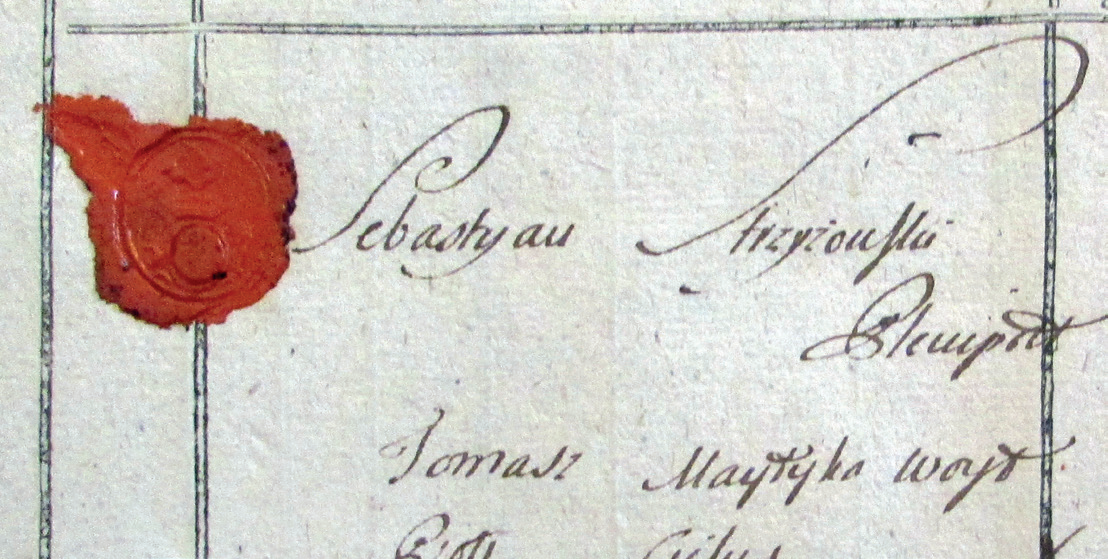 Sebastyan Strzyżowski
Plenipott
Tomasz Maytyka woyt